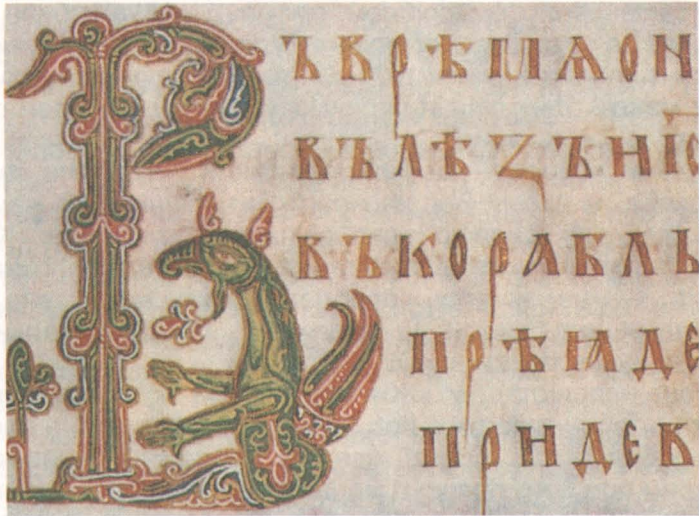 ВЪВРѢМѦОН
ВЪЛѢꙀЪИІ҃С
ВЪКОРАБЛЬ
ПРѢꙖДЕ
ПРИДЕВ